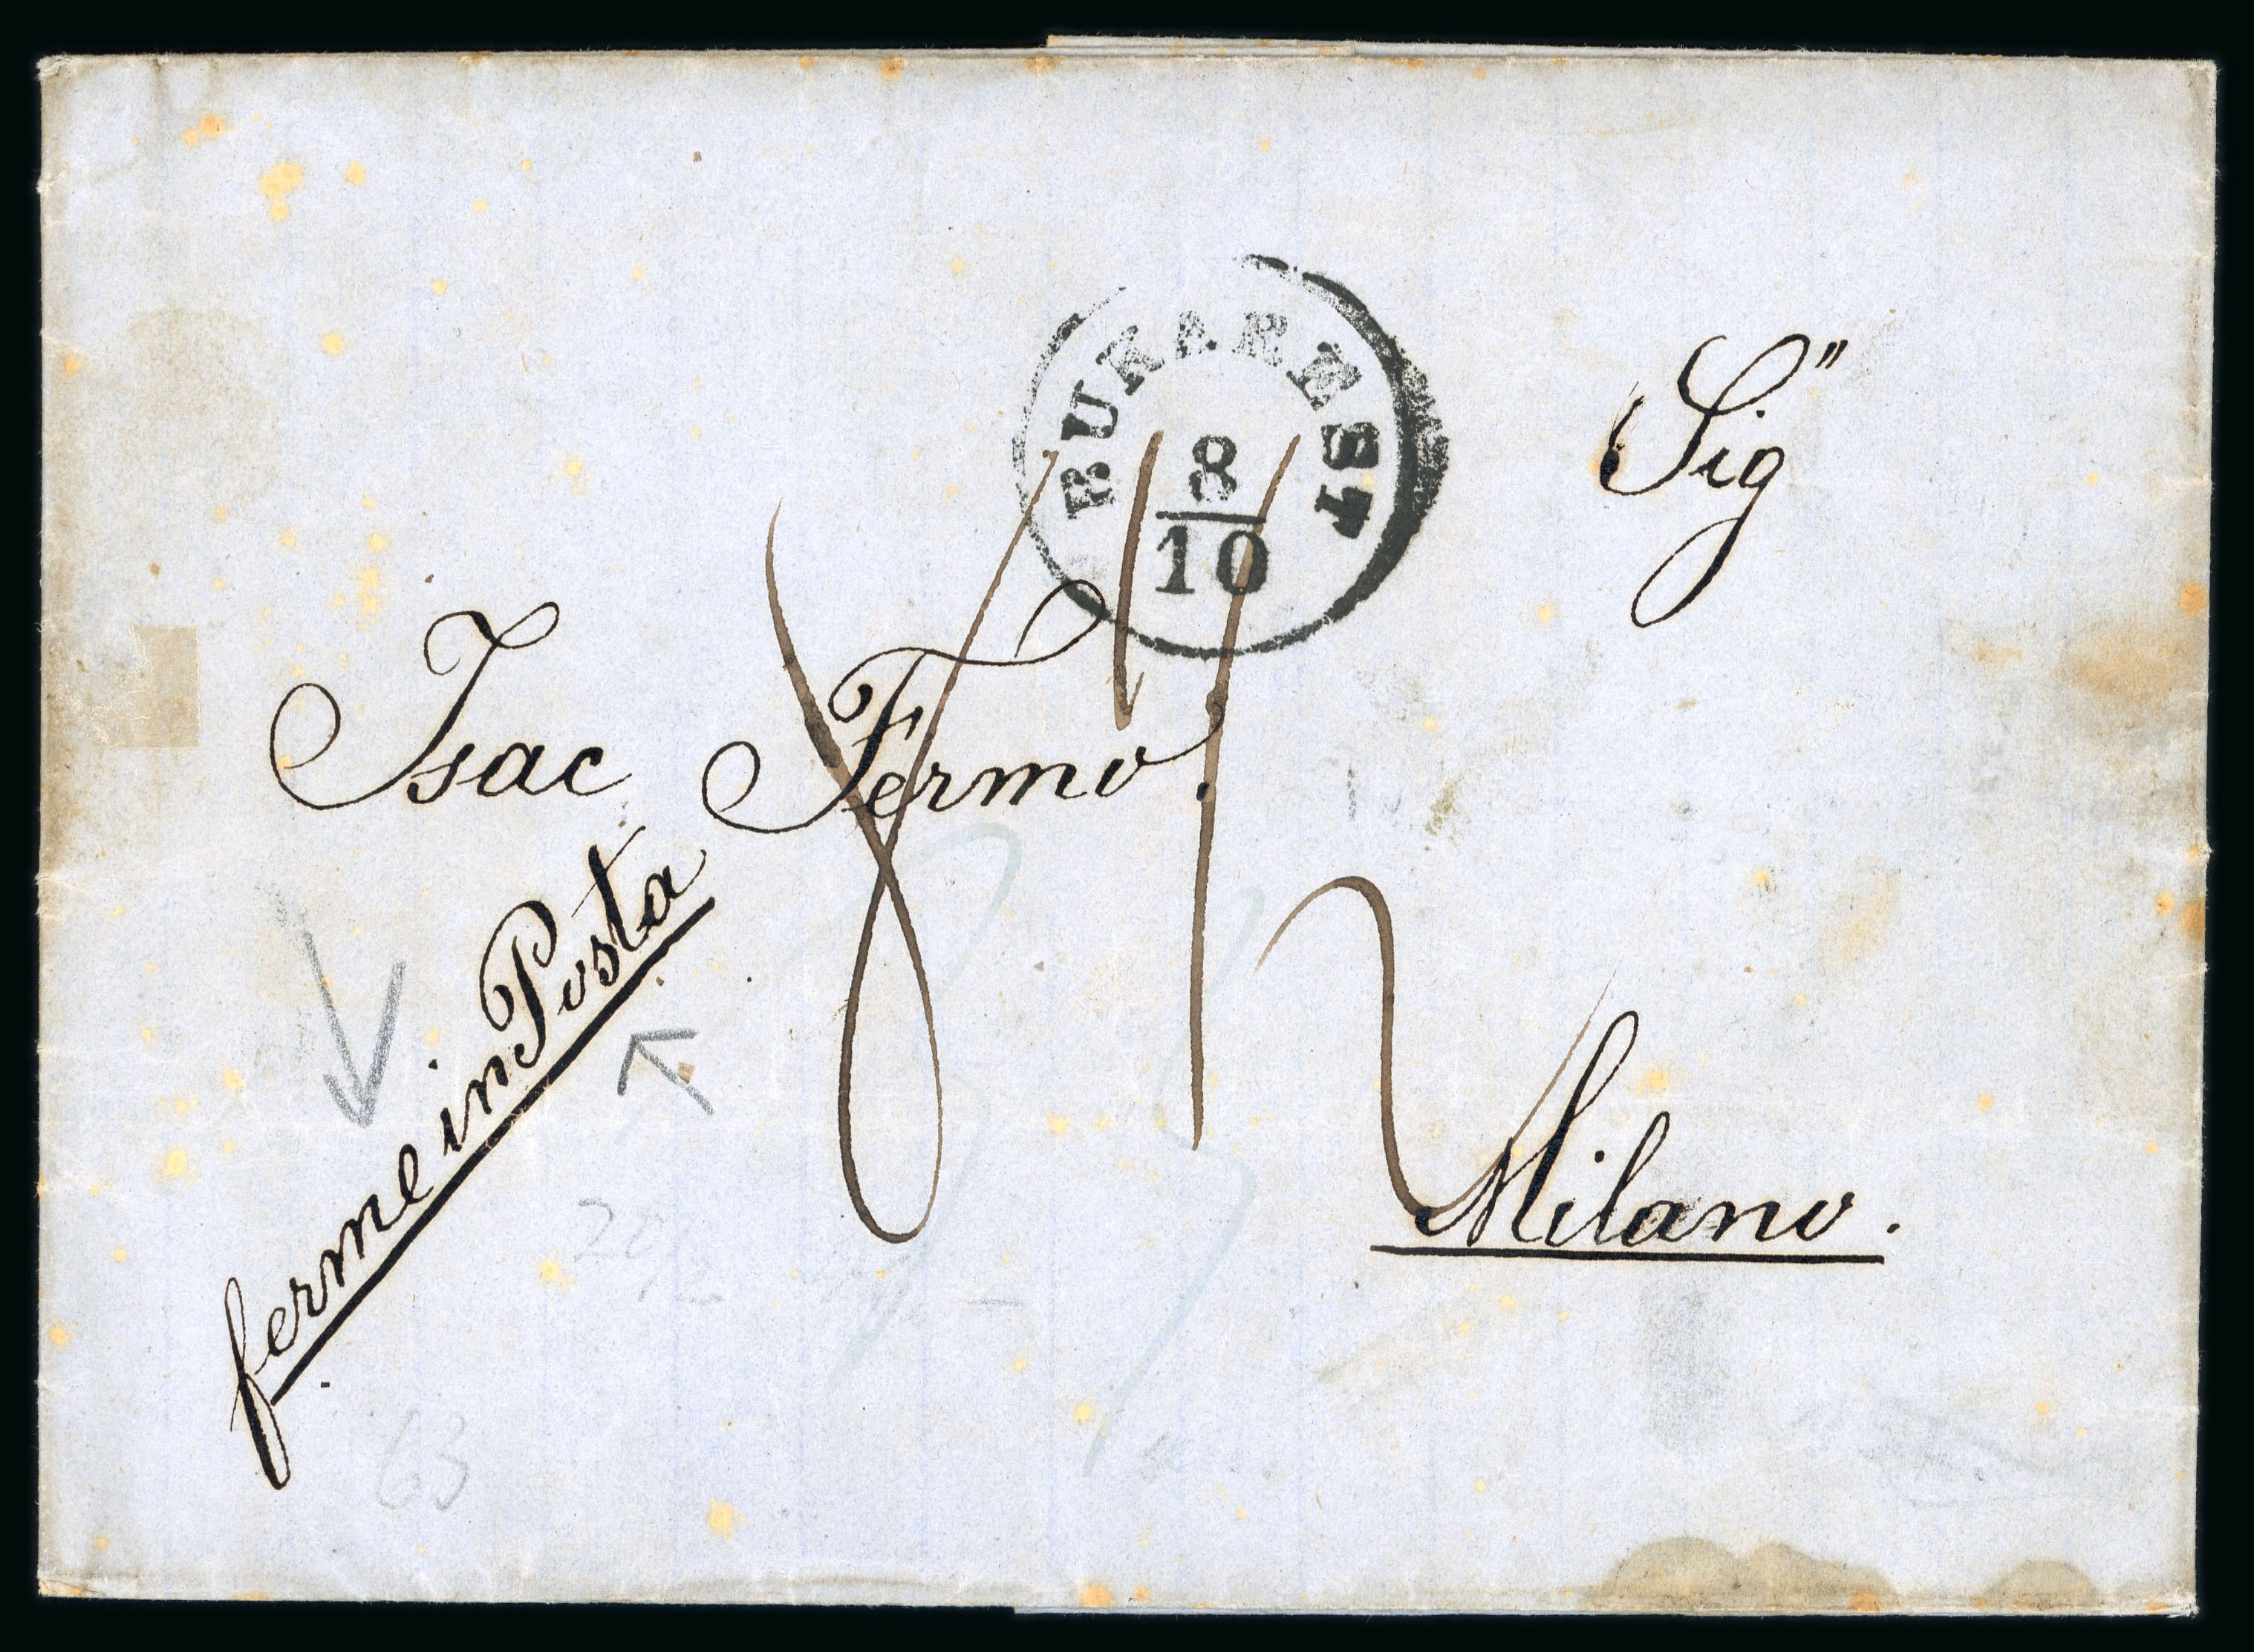 BUKAREST
8
10
Sig"
Isac Fermo.
ferme in Posta
Milano.
63